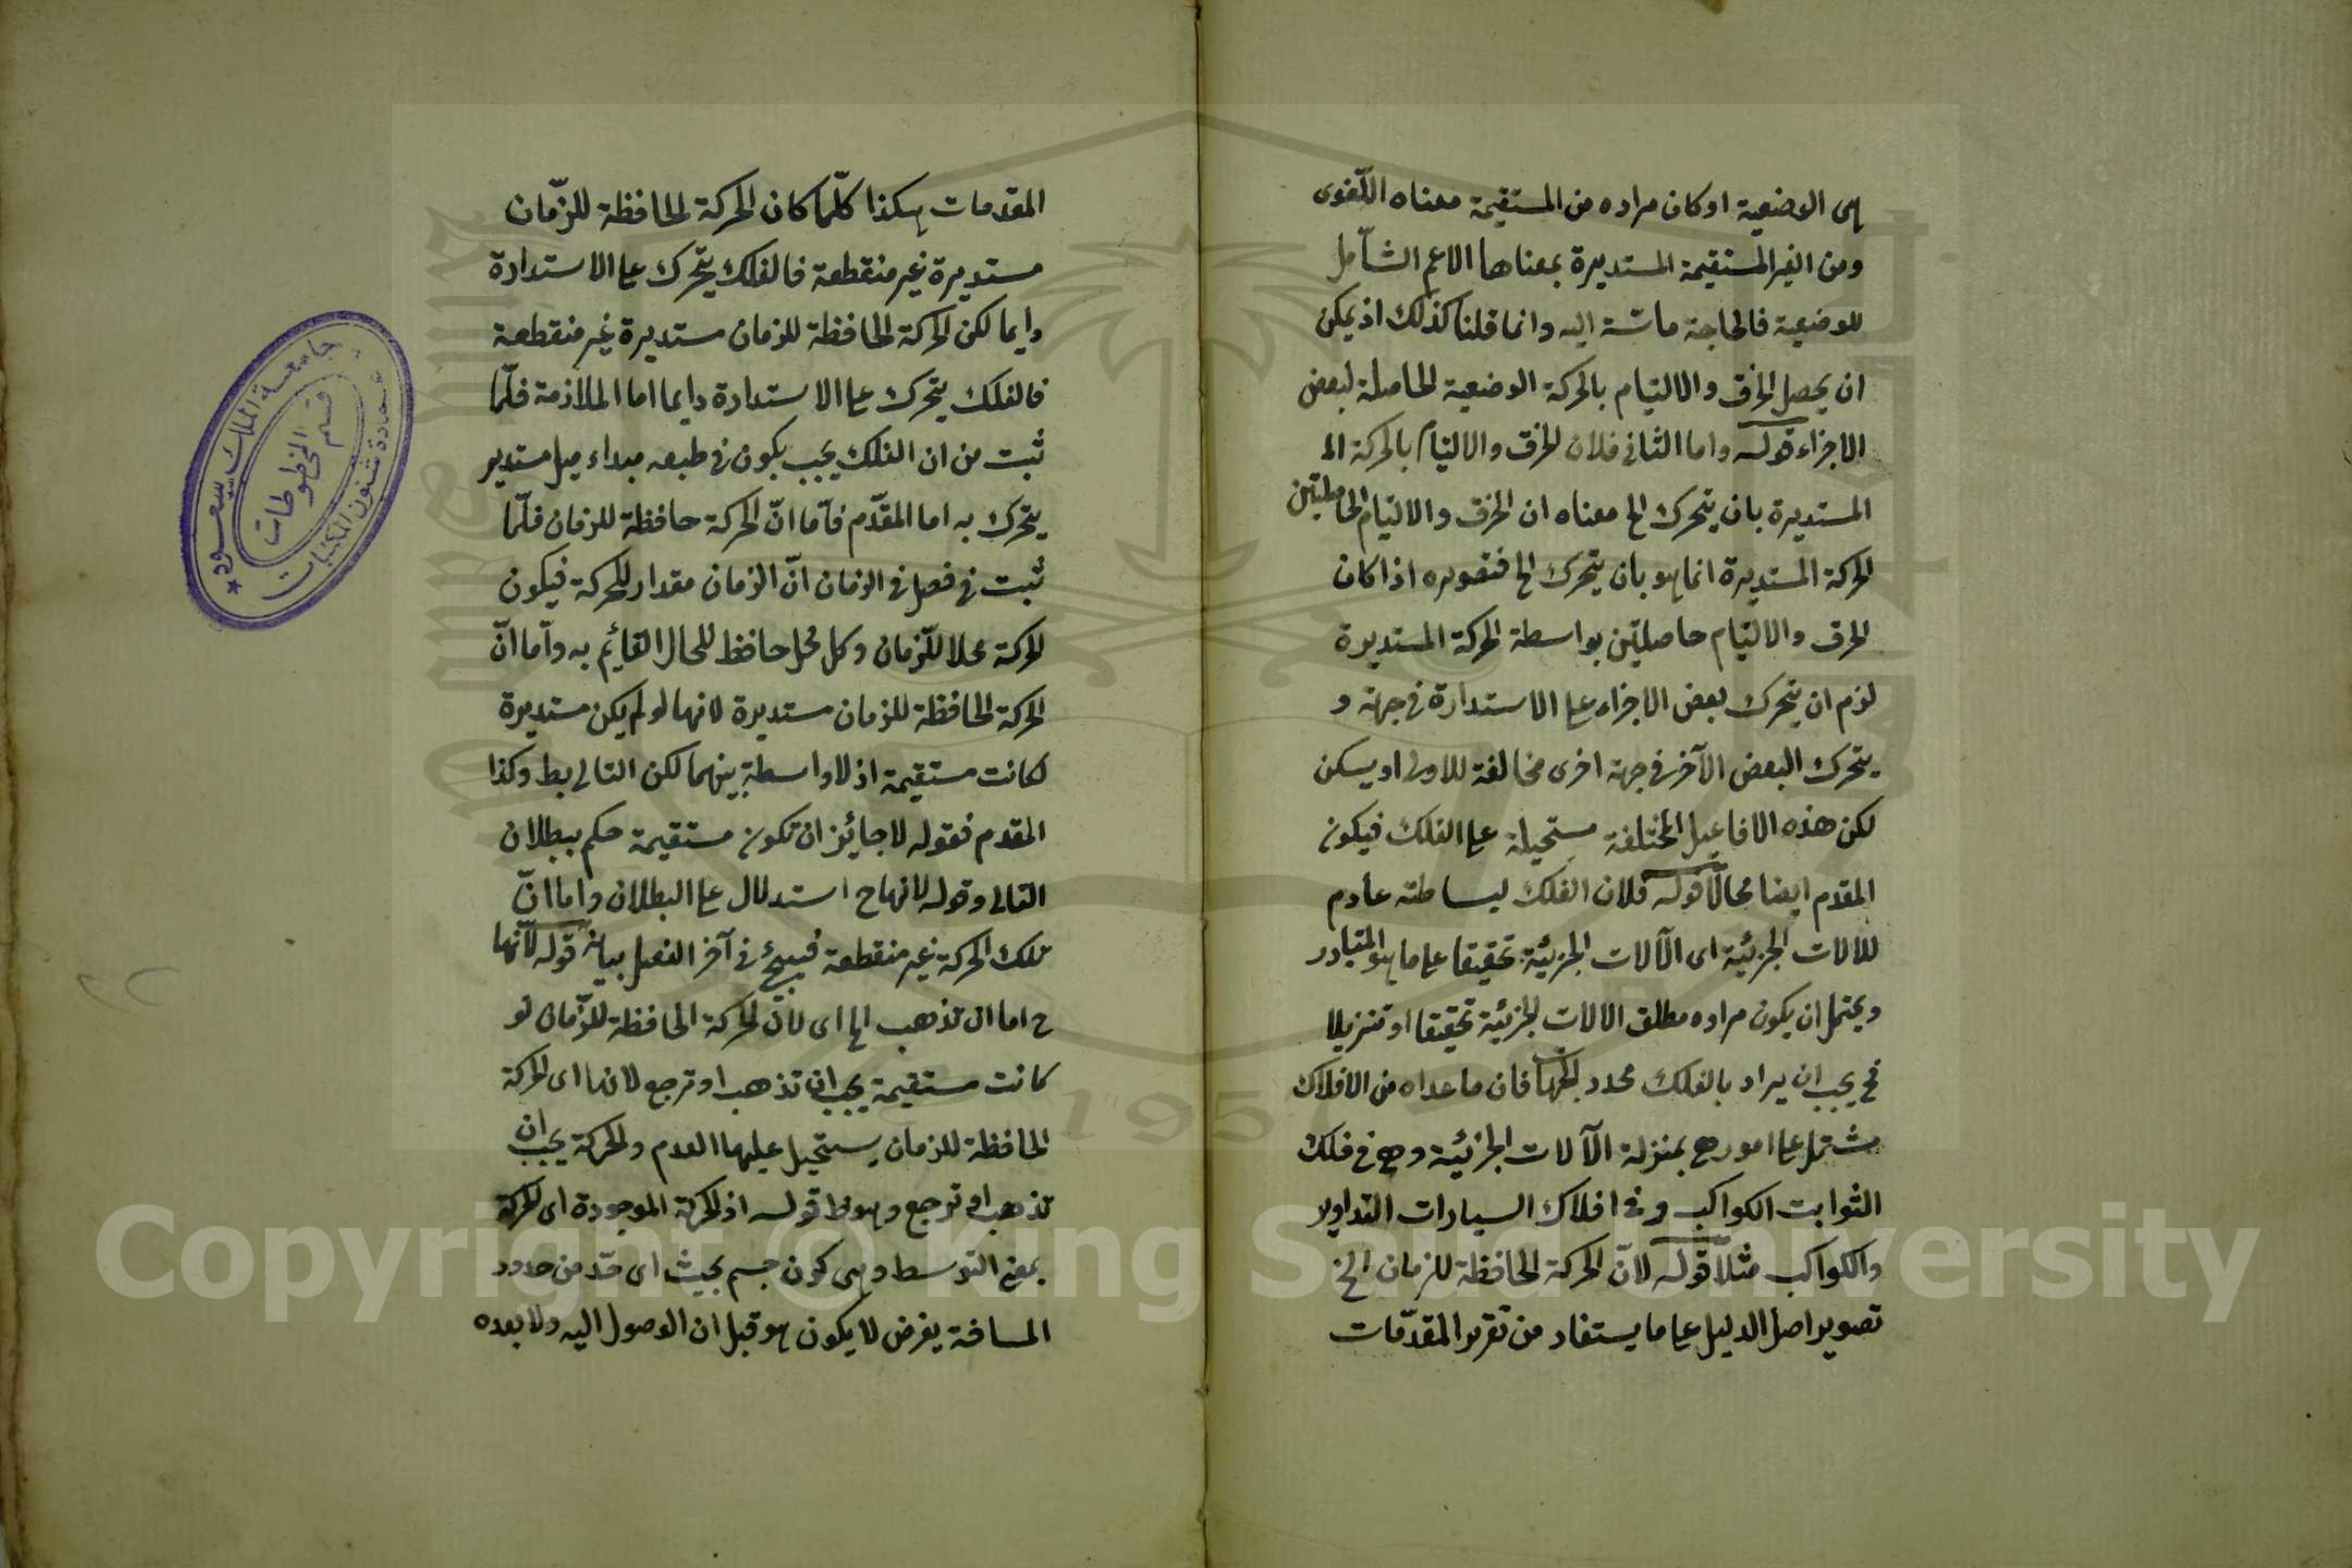 هى الوضعية او كان مراده من المستقيمة معناه اللغوى
ومن الغير المستقيمة المستديرة بمعناها الاعم الشامل
للوضعية فالحاجة ماسّة اليه وانما قلنا كذلك اذ يمكن
ان يحصل الخرق والالتيام بالحركة الوضعية الحاصلة لبعض
الاجزاء قوله واما الثانى فلان الخرق والالتيام بالحركة الـ
المستديرة بان يتحرك الخ معناه ان الخرق والالتيام الحاصلين
الحركة المستديرة انما هو بان يتحرك الخ فتصويره اذا كان
الخرق والالتيام حاصلين بواسطة الحركة المستديرة
لزم ان يتحرك بعض الاجزاء على الاستدارة فى جهة و
يتحرك البعض الآخر فى جهة اخرى مخالفة للاولى او يسكن
لكن هذه الافاعيل المختلفة مستحيلة على الفلك فيكون
المقدم ايضا محالا قوله فلان الفلك لبساطته عادم
للالات الجزئية اى الآلات الجزئية تحقيقا على ما هو المتبادر
ويحتمل ان يكون مراده مطلق الالات الجزئية تحقيقا او تنزيلا
فح يجب ان يراد بالفلك محدد الجهات فان ما عداه من الافلاك
مشتمل على امور هى بمنزلة الآلات الجزئية وهى فى فلك
الثوابت الكواكب وفى افلاك السيارات التداوير
والكواكب مثلا قوله لانّ الحركة الحافظة للزمان الخ
تصوير اصل الدليل على ما يستفاد من تقرير المقدّمات
المقدمات هكذا كلّما كان الحركة الحافظة للزّمان
مستديرة غير منقطعة فالفلك يتحرك على الاستدارة
دايما لكن الحركة الحافظة للزمان مستديرة غير منقطعة
فالفلك يتحرك على الاستدارة دايما اما الملازمة فلما
ثبت من ان الفلك يجب يكون فى طبعه مبداء ميل مستدير
يتحرك به اما المقدّم فاما انّ الحركة حافظة للزمان فلّما
ثبت فى فصل فى الزمان انّ الزمان مقدار للحركة فيكون
الحركة محلا للزّمان وكل محل حافظ للحال القايم به وامّا انّ
الحركة الحافظة للزمان مستديرة لانها لو لم يكن مستديرة
لكانت مستقيمة اذ لا واسطة بينهما لكن التالى بط وكذا
المقدم فقوله لا جايز ان تكون مستقيمة حكم ببطلان
التالى وقوله لانها ح استدلال على البطلان واما انّ
تلك الحركة غير منقطعة فسيجئ فى آخر الفصل بيانه قوله لانّها
ح اما ان تذهب الخ اى لانّ الحركة الحافظة للزّمان لو
كانت مستقيمة يجب ان تذهب او ترجع لانها اى الحركة
الحافظة للزمان يستحيل عليها العدم والحركة يجب ان
تذهب او ترجع وهو ظ قوله اذ الحركة الموجودة اى الحركة
بمعنى التوسط وهى كون جسم بحيث اى حدّ من حدود
المسافة يفرض لا يكون هو قبل ان الوصول اليه ولا بعده
جامعة الملك سعود
قسم المخطوطات
عمادة شئون المكتبات
Copyright © King Saud University
195